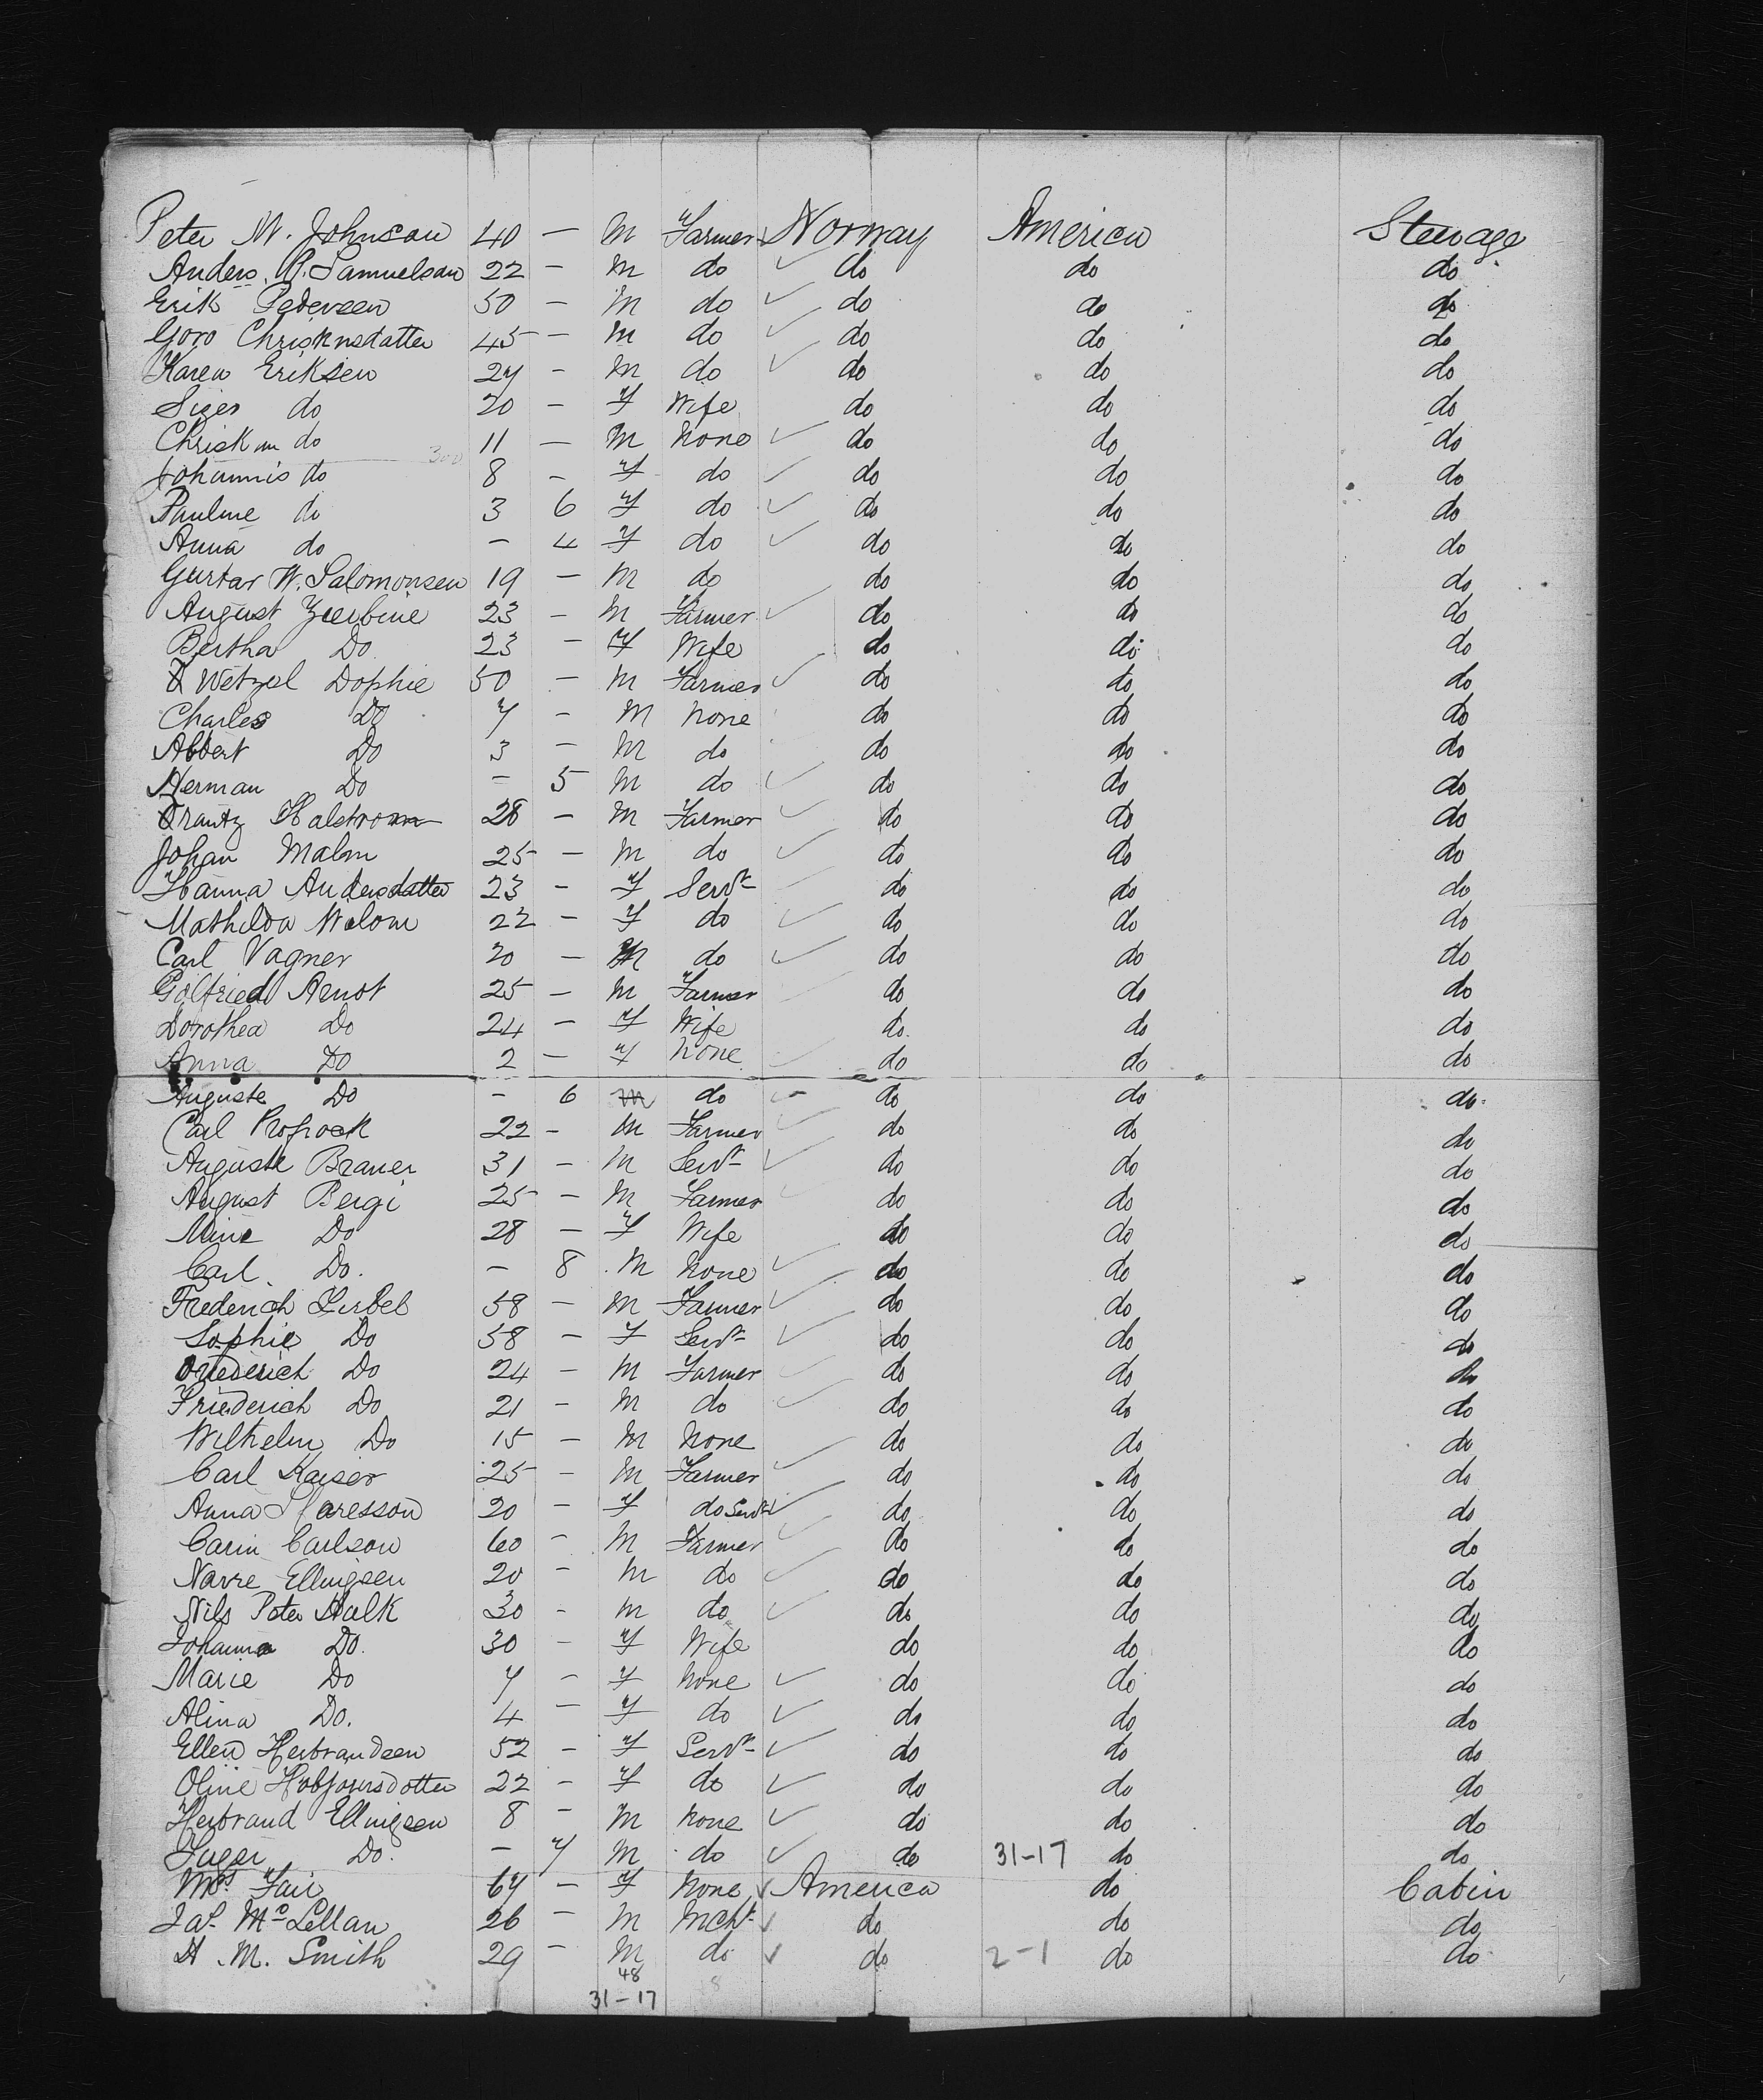 Peter M. Johnson 40 — M Farmer Norway America Steerage
Anders P. Samuelson 22 — M do do do do
Erik Pedersen 50 — M do do do do
Goro Christensdatter 45 — M do do do do
Karen Eriksen 27 — M do do do do
Sizer do 20 — F Wife do do do
Christian do 11 — M None do do do
300
Johannis do 8 — F do do do do
Pauline do 3 6 F do do do do
Anna do — 4 F do do do do
Gustav W. Salomonsen 19 — M do do do do
August Zierbine 23 — M Farmer do do do
Bertha Do 23 — F Wife do do do
Wetzel Dophie 50 — M Farmer do do do
Charles Do 7 — M None do do do
Abbert Do 3 — M do do do do
Herman Do — 5 M do do do do
Frantz Halstrom 28 — M Farmer do do do
Johan Malm 25 — M do do do do
Hanna Andersdatter 23 — F Servt do do do
Mathilda Welom 22 — F do do do do
Carl Vagner 20 — M do do do do
Golfried Arnot 25 — M Farmer do do do
Dorothea Do 24 — F Wife do do do
Anna Do 2 — F None do do do
Auguste Do — 6 M do do do do
Carl Profrock 22 — M Farmer do do do
Auguste Braner 31 — M Servt do do do
August Bergi 25 — M Farmer do do do
Mine Do 28 — F Wife do do do
Carl Do. — 8 M None do do do
Frederich Zirbel 58 — M Farmer do do do
Sophie Do 58 — F Servt do do do
Frederich Do 24 — M Farmer do do do
Friederich Do 21 — M do do do do
Wilhelm Do 15 — M None do do do
Carl Kaiser 25 — M Farmer do do do
Anna 20 — F do Servt do do do
Carin Carlson 60 — M Farmer do do do
Navre Ellingsen 20 — M do do do do
Nils Peter Halk 30 — M do do do do
Johanna Do. 30 — F Wife do do do
Marie Do 7 — F None do do do
Alina Do. 4 — F do do do do
Ellen Herbrandsen 52 — F Servt do do do
Oline Hobjoursdotter 22 — F do do do do
Herbrand Ellingsen 8 — M None do do do
Inger Do. — 7 M do do 31-17 do do
Mrs Fair 67 — F None America do Cabin
Jas. McLellan 26 — M Mcht do do do
H. M. Smith 29 — M do do 2-1 do do
48 8
31-17